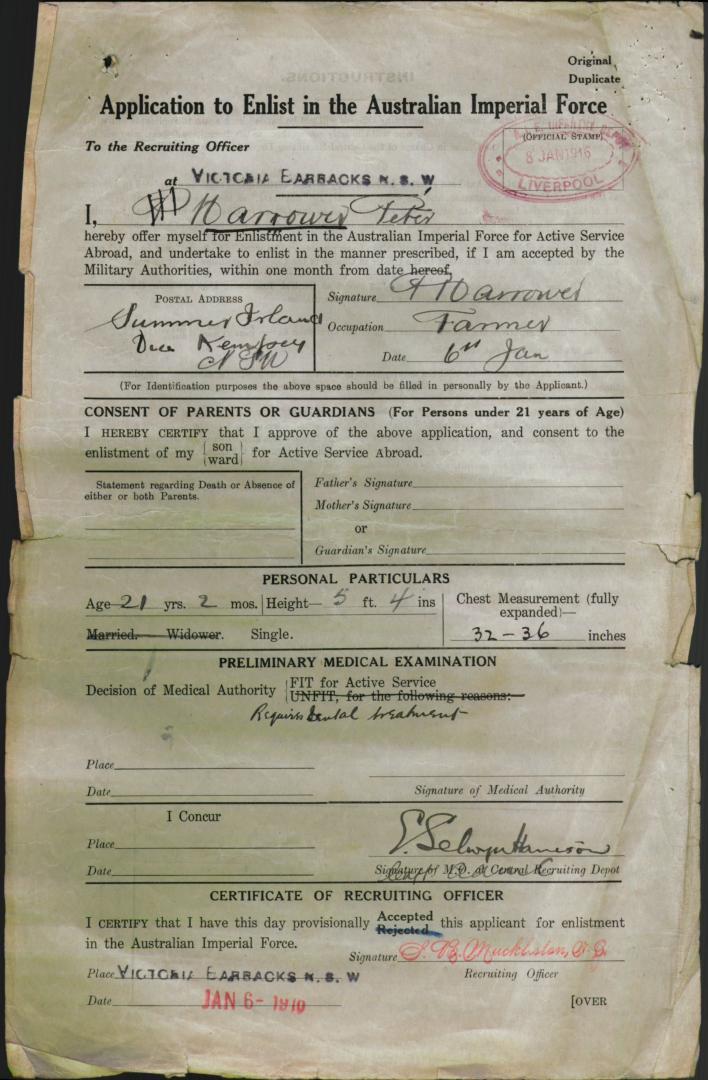 Original
Duplicate
Application to Enlist in the Australian Imperial Force
To the Recruiting Officer
(OFFICIAL STAMP)
8 JAN 1916
LIVERPOOL
at VICTORIA BARRACKS N.S.W
I, Harrower Peter
hereby offer myself for Enlistment in the Australian Imperial Force for Active Service
Abroad, and undertake to enlist in the manner prescribed, if I am accepted by the
Military Authorities, within one month from date hereof.
POSTAL ADDRESS
Summer Island
Via Kempsey
NSW
Signature P Harrower
Occupation Farmer
Date 6th Jan
(For Identification purposes the above space should be filled in personally by the Applicant.)
CONSENT OF PARENTS OR GUARDIANS (For Persons under 21 years of Age)
I HEREBY CERTIFY that I approve of the above application, and consent to the
enlistment of my {son ward} for Active Service Abroad.
Statement regarding Death or Absence of
either or both Parents.
Father's Signature
Mother's Signature
or
Guardian's Signature
PERSONAL PARTICULARS
Age 21 yrs. 2 mos. Height— 5 ft. 4 ins
Chest Measurement (fully
expanded)—
32-36 inches
Married. Widower. Single.
PRELIMINARY MEDICAL EXAMINATION
Decision of Medical Authority {FIT for Active Service
UNFIT, for the following reasons:
Requires Dental treatment
Place
Date
Signature of Medical Authority
I Concur
Place
Date
E. Selwyn Harrison
Signature of M.O. at Central Recruiting Depot
CERTIFICATE OF RECRUITING OFFICER
I CERTIFY that I have this day provisionally Accepted Rejected this applicant for enlistment
in the Australian Imperial Force.
Signature
Recruiting Officer
Place VICTORIA BARRACKS N.S.W
Date JAN 6-1916
[OVER